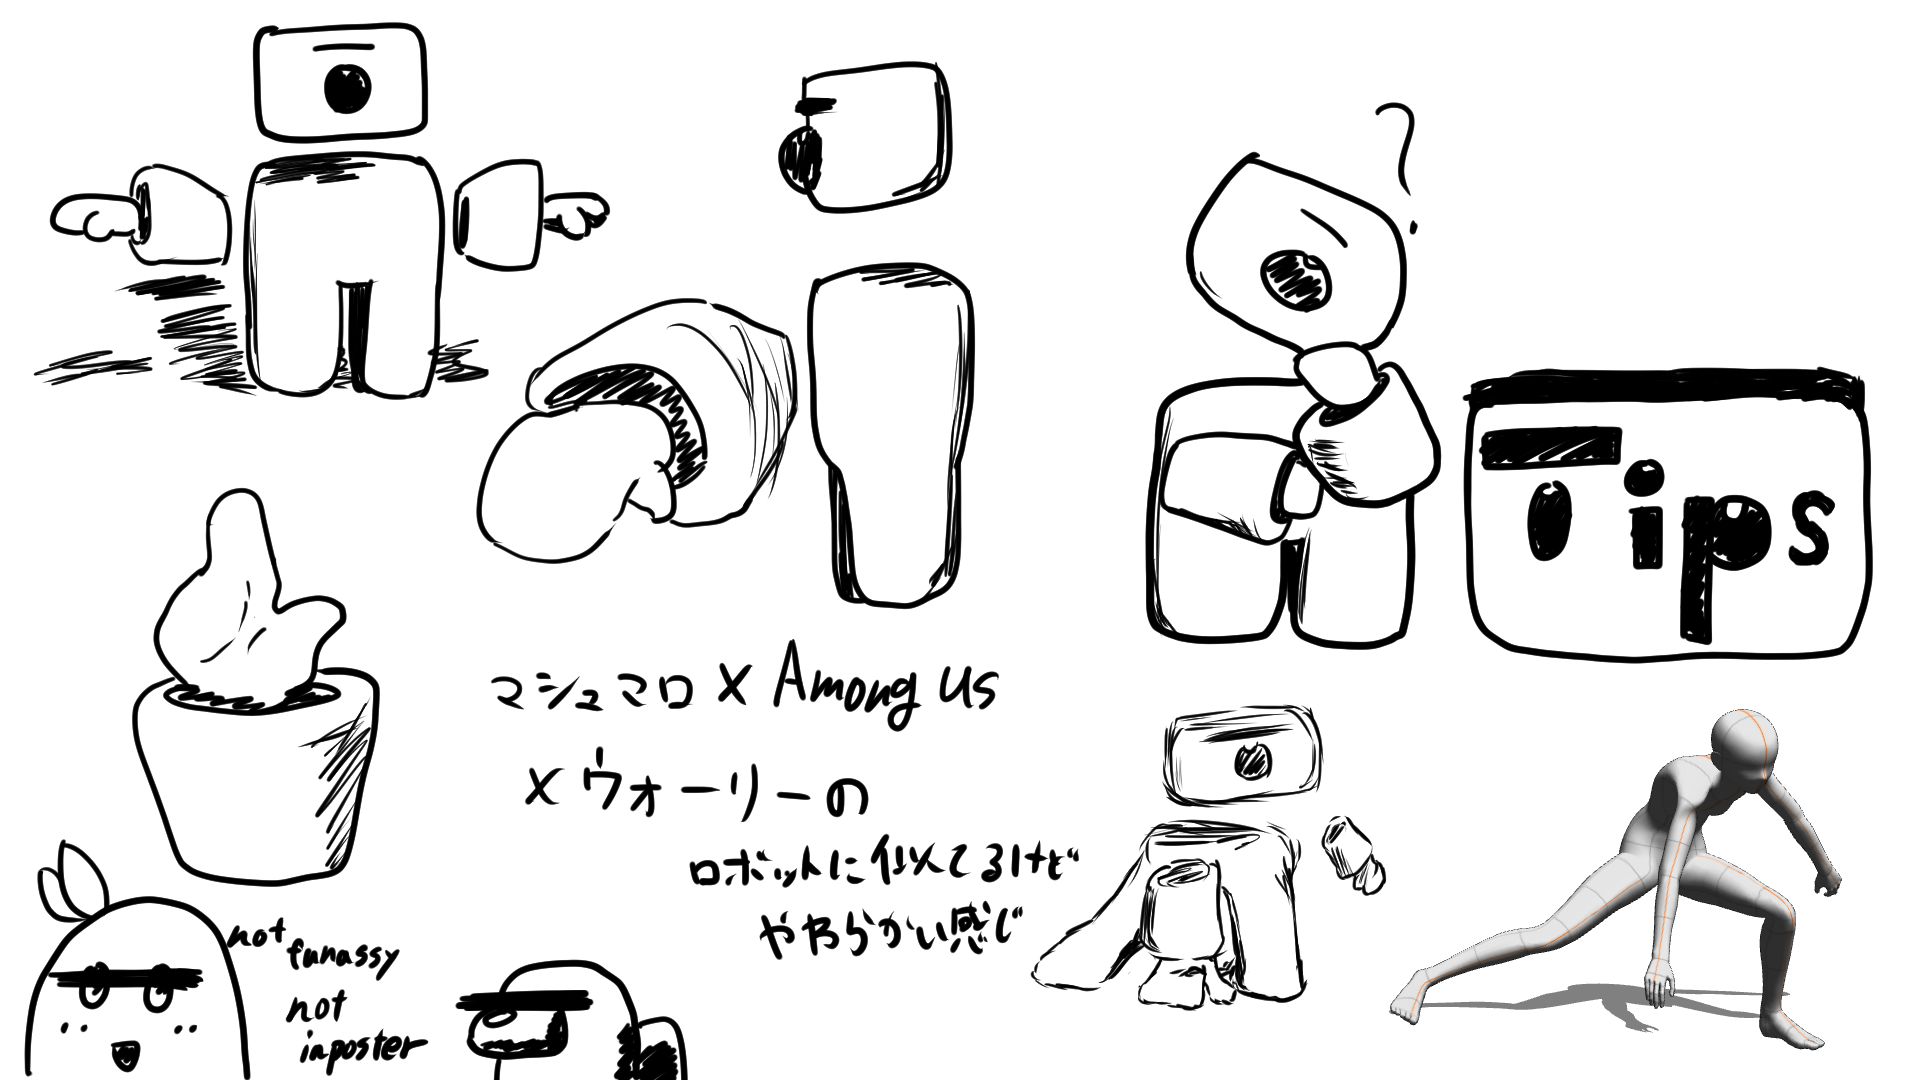 ?
Tips
マシュマロ X Among Us
X ウォーリーの
ロボットに似てるけど
やわらかい感じ
not
funassy
not
inposter